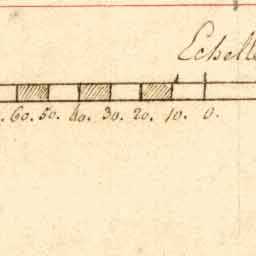 Echelle
60. 50. 40. 30. 20. 10. 0.